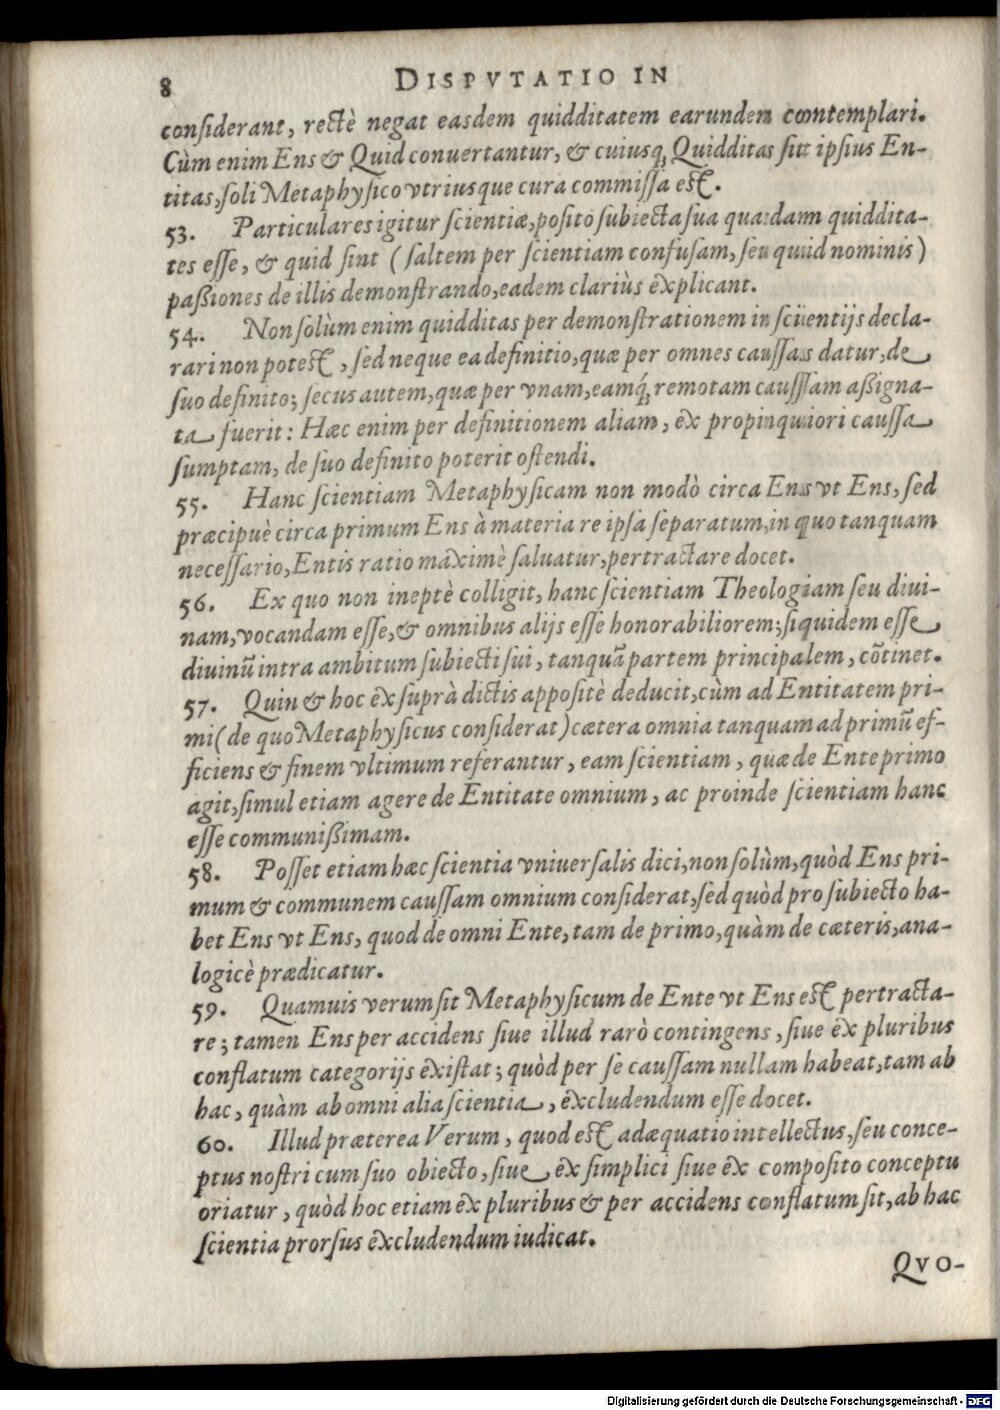 8 DISPVTATIO IN
considerant, rectè negat easdem quidditatem earundem contemplari.
Cùm enim Ens & Quid conuertantur, & cuiusq; Quidditas sit ipsius En-
titas, soli Metaphysico vtriusque cura commissa est.
53. Particulares igitur scientiæ, posito subiecta sua quædam quiddita-
tes esse, & quid sint (saltem per scientiam confusam, seu quid nominis)
paßiones de illis demonstrando, eadem clariùs explicant.
54. Non solùm enim quidditas per demonstrationem in scientijs decla-
rari non potest, sed neque ea definitio, quæ per omnes caussas datur, de
suo definito; secus autem, quæ per vnam, eamq́; remotam caussam aßigna-
ta fuerit: Hæc enim per definitionem aliam, ex propinquiori caussa
sumptam, de suo definito poterit ostendi.
55. Hanc scientiam Metaphysicam non modò circa Ens vt Ens, sed
præcipuè circa primum Ens à materia re ipsa separatum, in quo tanquam
necessario, Entis ratio maximè saluatur, pertractare docet.
56. Ex quo non ineptè colligit, hanc scientiam Theologiam seu diui-
nam, vocandam esse, & omnibus alijs esse honorabiliorem; siquidem esse
diuinũ intra ambitum subiecti sui, tanquã partem principalem, cõtinet.
57. Quin & hoc ex suprà dictis appositè deducit, cùm ad Entitatem pri-
mi (de quo Metaphysicus considerat) cætera omnia tanquam ad primũ ef-
ficiens & finem vltimum referantur, eam scientiam, quæ de Ente primo
agit, simul etiam agere de Entitate omnium, ac proinde scientiam hanc
esse communißimam.
58. Posset etiam hæc scientia vniuersalis dici, non solùm, quòd Ens pri-
mum & communem caussam omnium considerat, sed quòd pro subiecto ha-
bet Ens vt Ens, quod de omni Ente, tam de primo, quàm de cæteris, ana-
logicè prædicatur.
59. Quamuis verum sit Metaphysicum de Ente vt Ens est pertracta-
re; tamen Ens per accidens siue illud rarò contingens, siue ex pluribus
conflatum categorijs existat; quòd per se caussam nullam habeat, tam ab
hac, quàm ab omni alia scientia, excludendum esse docet.
60. Illud præterea Verum, quod est adæquatio intellectus, seu conce-
ptus nostri cum suo obiecto, siue ex simplici siue ex composito conceptu
oriatur, quòd hoc etiam ex pluribus & per accidens conflatum sit, ab hac
scientia prorsus excludendum iudicat.
QVO-
Digitalisierung gefördert durch die Deutsche Forschungsgemeinschaft - DFG